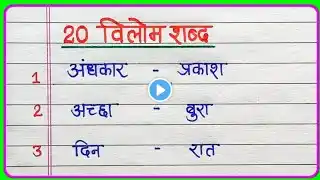 20 विलोम शब्द
1 अंधकार - प्रकाश
2 अच्छा - बुरा
3 दिन - रात